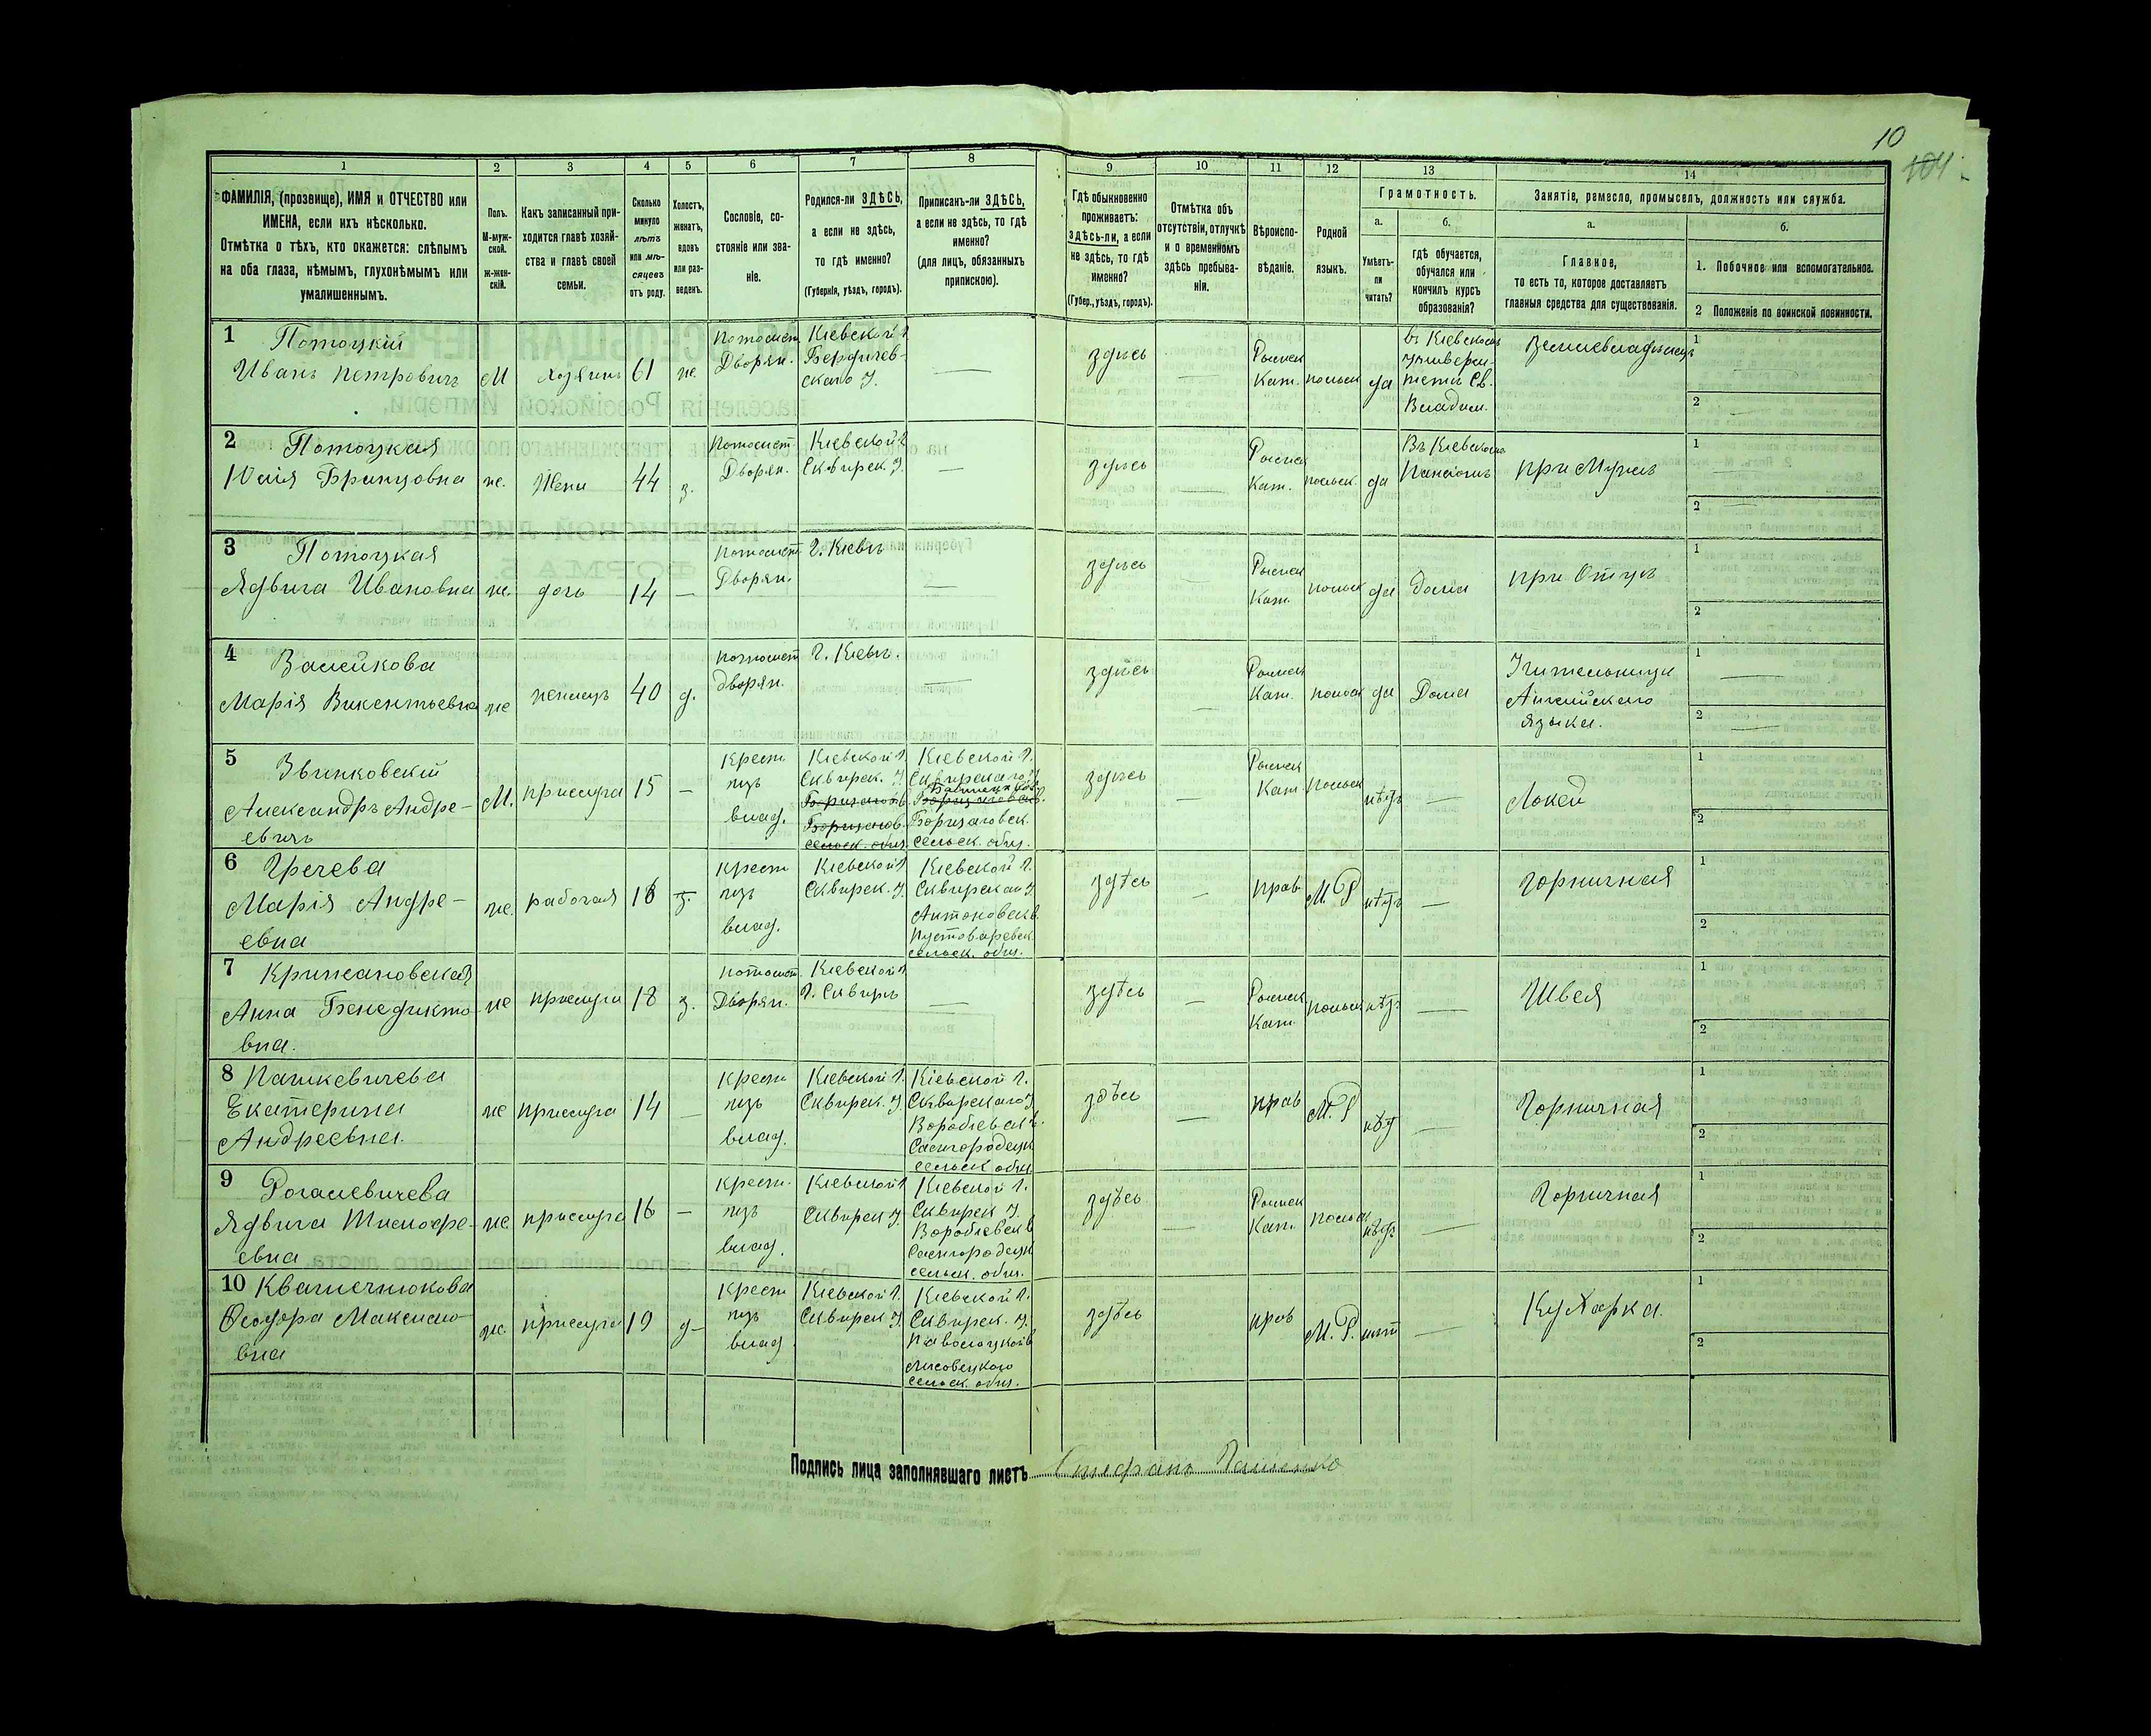 10
104
1 2 3 4 5 6 7 8 9 10 11 12 13 14
ФАМИЛІЯ, (прозвище), ИМЯ и ОТЧЕСТВО или
ИМЕНА, если ихъ нѣсколько.
Отмѣтка о тѣхъ, кто окажется: слѣпымъ
на оба глаза, нѣмымъ, глухонѣмымъ или
умалишеннымъ.
Полъ.
М-муж-
ской.
ж-жен-
скій.
Какъ записанный при-
ходится главѣ хозяй-
ства и главѣ своей
семьи.
Сколько
минуло
лѣтъ
или мѣ-
сяцевъ
отъ роду.
Холостъ,
женатъ,
вдовъ
или раз-
веденъ.
Сословіе, со-
стояніе или зва-
ніе.
Родился-ли ЗДѢСЬ,
а если не здѣсь,
то гдѣ именно?
(Губернія, уѣздъ, городъ).
Приписанъ-ли ЗДѢСЬ,
а если не здѣсь, то гдѣ
именно?
(для лицъ, обязанныхъ
припискою).
Гдѣ обыкновенно
проживаетъ:
здѣсь-ли, а если
не здѣсь, то гдѣ
именно?
(Губер., уѣздъ, городъ).
Отмѣтка объ
отсутствіи, отлучкѣ
и о временномъ
здѣсь пребыва-
ніи.
Вѣроиспо-
вѣданіе.
Родной
языкъ.
Грамотность.
а.
Умѣетъ-
ли
читать?
б.
гдѣ обучается,
обучался или
кончилъ курсъ
образованія?
Занятіе, ремесло, промыселъ, должность или служба.
а.
Главное,
то есть то, которое доставляетъ
главныя средства для существованія.
б.
1. Побочное или вспомогательное.
2 Положеніе по воинской повинности.
1 Потоцкій
Иванъ Петровичъ
М
хозяинъ
61
же.
Потомст.
Дворян.
Кіевской г.
Бердичев-
скаго у.
—
здѣсь
—
Римск
Кат.
польск
да
въ Кіевском
универси-
тетѣ Св.
Владим.
Землевладѣлецъ
1 —
2 —
2 Потоцкая
Юлія Францовна
же.
Жена
44
з.
Потомст.
Дворян.
Кіевской г.
Сквирск. у.
—
здѣсь
—
Римск
Кат.
польск.
да
Въ Кіевскомъ
Пансіонѣ
при Мужѣ
1 —
2 —
3 Потоцкая
Ядвига Ивановна
же.
дочь
14
—
потомст
Дворян.
г. Кіевъ
—
здѣсь
—
Римск
Кат.
польск
да
дома
при Отцѣ
1
2
4
Марія Викентьевна
же
40
д.
потомст
дворян.
г. Кіевъ.
—
здѣсь
—
Римск
Кат.
польск
да
Дома
Учительница
Англійскаго
языка.
1 —
2 —
5 Звинковскій
Александръ Андре-
евичъ
М.
прислуга
15
—
Крест
изъ
влад.
Кіевской г.
Сквирск. у.
сельск. общ.
Кіевской г.
Сквирскаго у.
сельск. общ.
здѣсь
—
Римск
Кат.
польск
нѣтъ
—
Локей
1
2
6 Гречева
Марія Андре-
евна
же.
рабочая
18
з.
крест
изъ
влад.
Кіевской г
Сквирск. у.
Кіевской г.
Сквирскаг у
Антоновск в.
Пустоваревск.
сельск. общ.
здѣсь
—
прав
М. Р
нѣтъ
—
Горничная
1
2
7 Крижановская
Анна Бенедикто
вна.
же
прислуга
18
з.
потомст.
Дворян.
Кіевской г
г. Сквиръ
—
здѣсь
—
Римск.
Кат.
польск
нѣтъ
—
Швея
1
2
8 Пашкевичева
Екатерина
Андреевна.
же
прислуга
14
—
Крест
изъ
влад.
Кіевской г.
Сквирск. у.
Кіевской г.
Сквирскаго у
сельск общ
здѣсь
—
прав
М. Р
нѣт
—
Горничная
1
2
9 Рогалевичева
Ядвига Тимофе-
евна
же
прислуга
16
—
крест.
изъ
влад.
Кіевской г
Сквирск у.
Кіевской г.
Сквирск у.
сельск. общ.
здѣсь
—
Римск
Кат.
польск
нѣт
—
Горничная
1
2
10
Феодора Максимо
вна
же.
прислуга
19
д-
Крест
изъ
влад
Кіевской г.
Сквирск у.
Кіевской г.
Сквирск. у.
Паволоцкой в
Лисовецкого
сельск. общ.
здѣсь
прав
М. Р.
нѣт
—
КуХарка.
1
2
Подпись лица заполнявшаго листъ